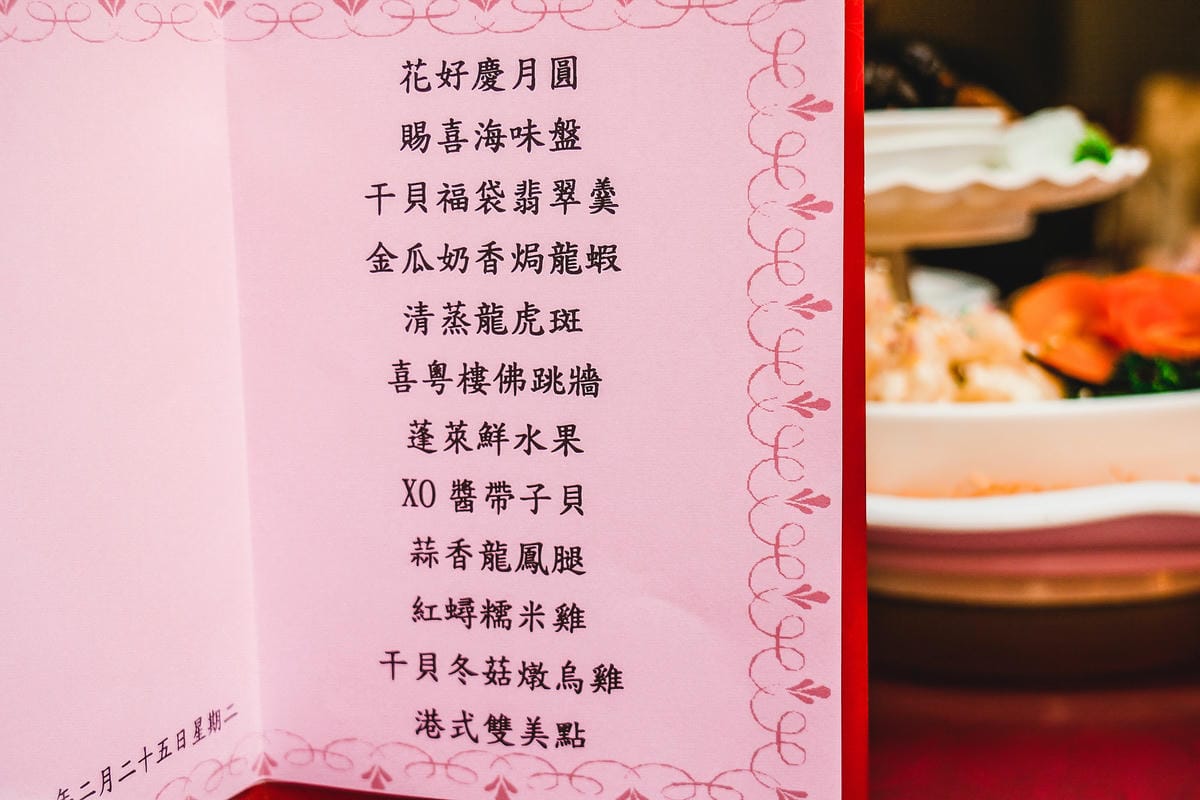 花好慶月圓
賜喜海味盤
干貝福袋翡翠羹
金瓜奶香焗龍蝦
清蒸龍虎斑
喜粵樓佛跳牆
蓬萊鮮水果
XO 醬帶子貝
蒜香龍鳳腿
紅蟳糯米雞
干貝冬菇燉烏雞
港式雙美點
年二月二十五日星期二